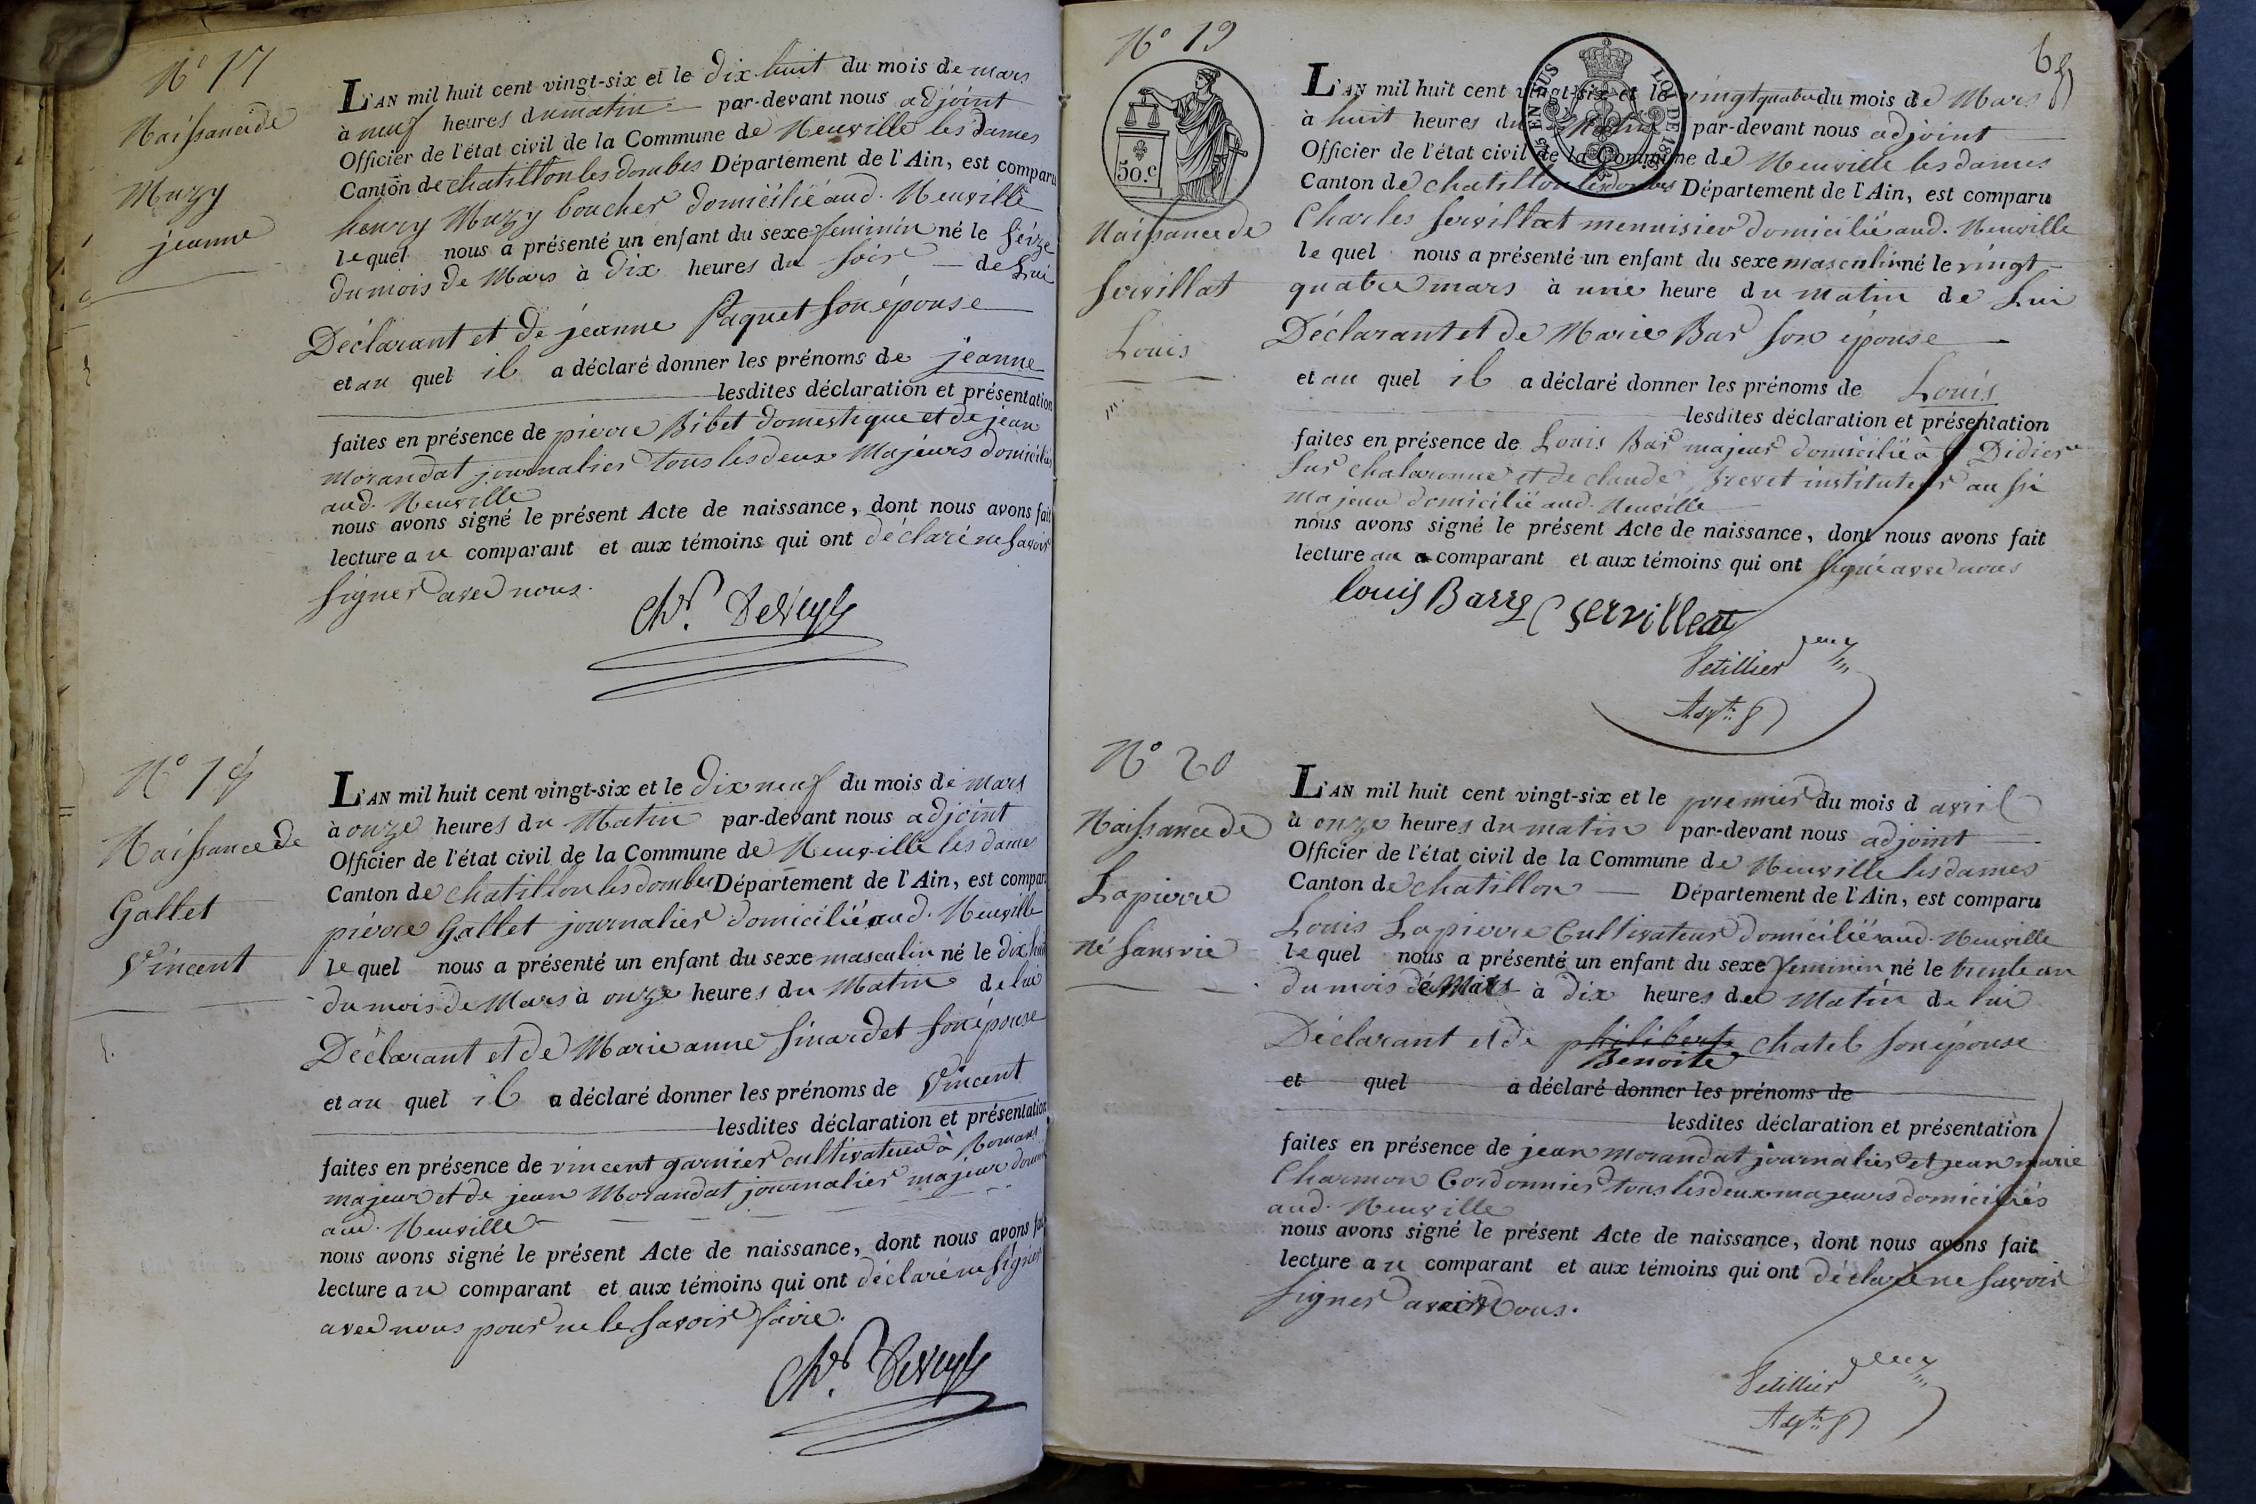 N° 17
Naissance de
Muzy
jeanne
L'AN mil huit cent vingt-six et le dix huit du mois de mars
à neuf heures du matin par-devant nous adjoint
Officier de l'état civil de la Commune de Neuville les dames
Canton de chatillon les dombes Département de l'Ain, est comparu
henry Muzy boucher domicilié aud. Neuville
lequel nous a présenté un enfant du sexe feminin né le seize
du mois de Mars à dix heures du soir de Lui
Déclarant et de jeanne Paquet son épouse
et au quel il a déclaré donner les prénoms de jeanne
lesdites déclaration et présentation
faites en présence de pierre Bibet domestique et de jean
Morandat journalier tous les deux Majeurs domiciliés
aud. Neuville
nous avons signé le présent Acte de naissance, dont nous avons fait
lecture au comparant et aux témoins qui ont déclaré ne savoir
signer avec nous.
N° 18
Naissance de
Gallet
Vincent
L'AN mil huit cent vingt-six et le dix neuf du mois de mars
à onze heures du Matin par-devant nous adjoint
Officier de l'état civil de la Commune de Neuville les dames
Canton de chatillon les dombes Département de l'Ain, est comparu
pierre Gallet journalier domicilié aud. Neuville
lequel nous a présenté un enfant du sexe masculin né le dix huit
du mois de Mars à onze heures du Matin de lui
Déclarant et de Marie anne Sinardet son épouse
et au quel il a déclaré donner les prénoms de Vincent
lesdites déclaration et présentation
faites en présence de vincent garnier cultivateur à Romans
majeur et de jean Morandat journalier majeur
aud. Neuville
nous avons signé le présent Acte de naissance, dont nous avons fait
lecture au comparant et aux témoins qui ont déclaré ne signer
avec nous pour ne le savoir faire.
N° 19
50.c
EN SUS
LOI DE
65
Naissance de
Servillat
Louis
L'AN mil huit cent vingt-six et le vingt quatre du mois de Mars
à huit heures du Matin par-devant nous adjoint
Officier de l'état civil de la Commune de Neuville les dames
Canton de chatillon les dombes Département de l'Ain, est comparu
Charles Servillat menuisier domicilié aud. Neuville
lequel nous a présenté un enfant du sexe masculin né le vingt
quatre mars à une heure du matin de Lui
Déclarant et de Marie Bas son épouse
et au quel il a déclaré donner les prénoms de Louis
lesdites déclaration et présentation
faites en présence de Louis Bas majeur domicilié à St Didier
sur chalaronne et de claude Brevet instituteur aussi
majeur domicilié aud. Neuville
nous avons signé le présent Acte de naissance, dont nous avons fait
lecture au comparant et aux témoins qui ont signé avec nous
louis Barre C servilleat
N° 20
Naissance de
Lapierre
né sans vie
L'AN mil huit cent vingt-six et le premier du mois d avril
à onze heures du matin par-devant nous adjoint
Officier de l'état civil de la Commune de Neuville les dames
Canton de chatillon Département de l'Ain, est comparu
Louis Lapierre Cultivateur domicilié aud. Neuville
lequel nous a présenté un enfant du sexe feminin né le trente un
du mois de Mars à dix heures du Matin de lui
Déclarant et de philiberte chatel son épouse
Benoite
et quel a déclaré donner les prénoms de
lesdites déclaration et présentation
faites en présence de jean morandat journalier et jean marie
Charmon Cordonnier tous les deux majeurs domiciliés
aud. Neuville
nous avons signé le présent Acte de naissance, dont nous avons fait
lecture au comparant et aux témoins qui ont déclaré ne savoir
signer avec Nous.